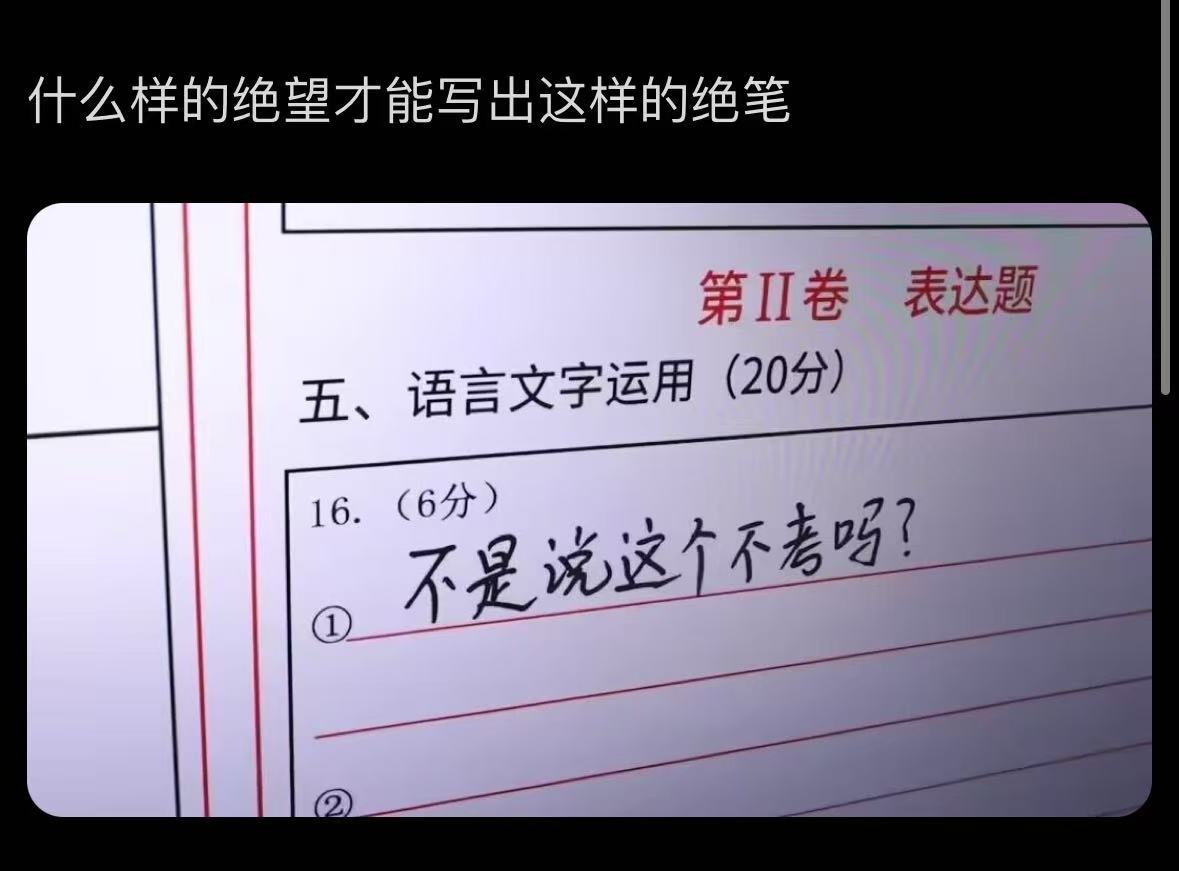 什么样的绝望才能写出这样的绝笔
第II卷 表达题
五、语言文字运用（20分）
16.（6分）
① 不是说这个不考吗？
②